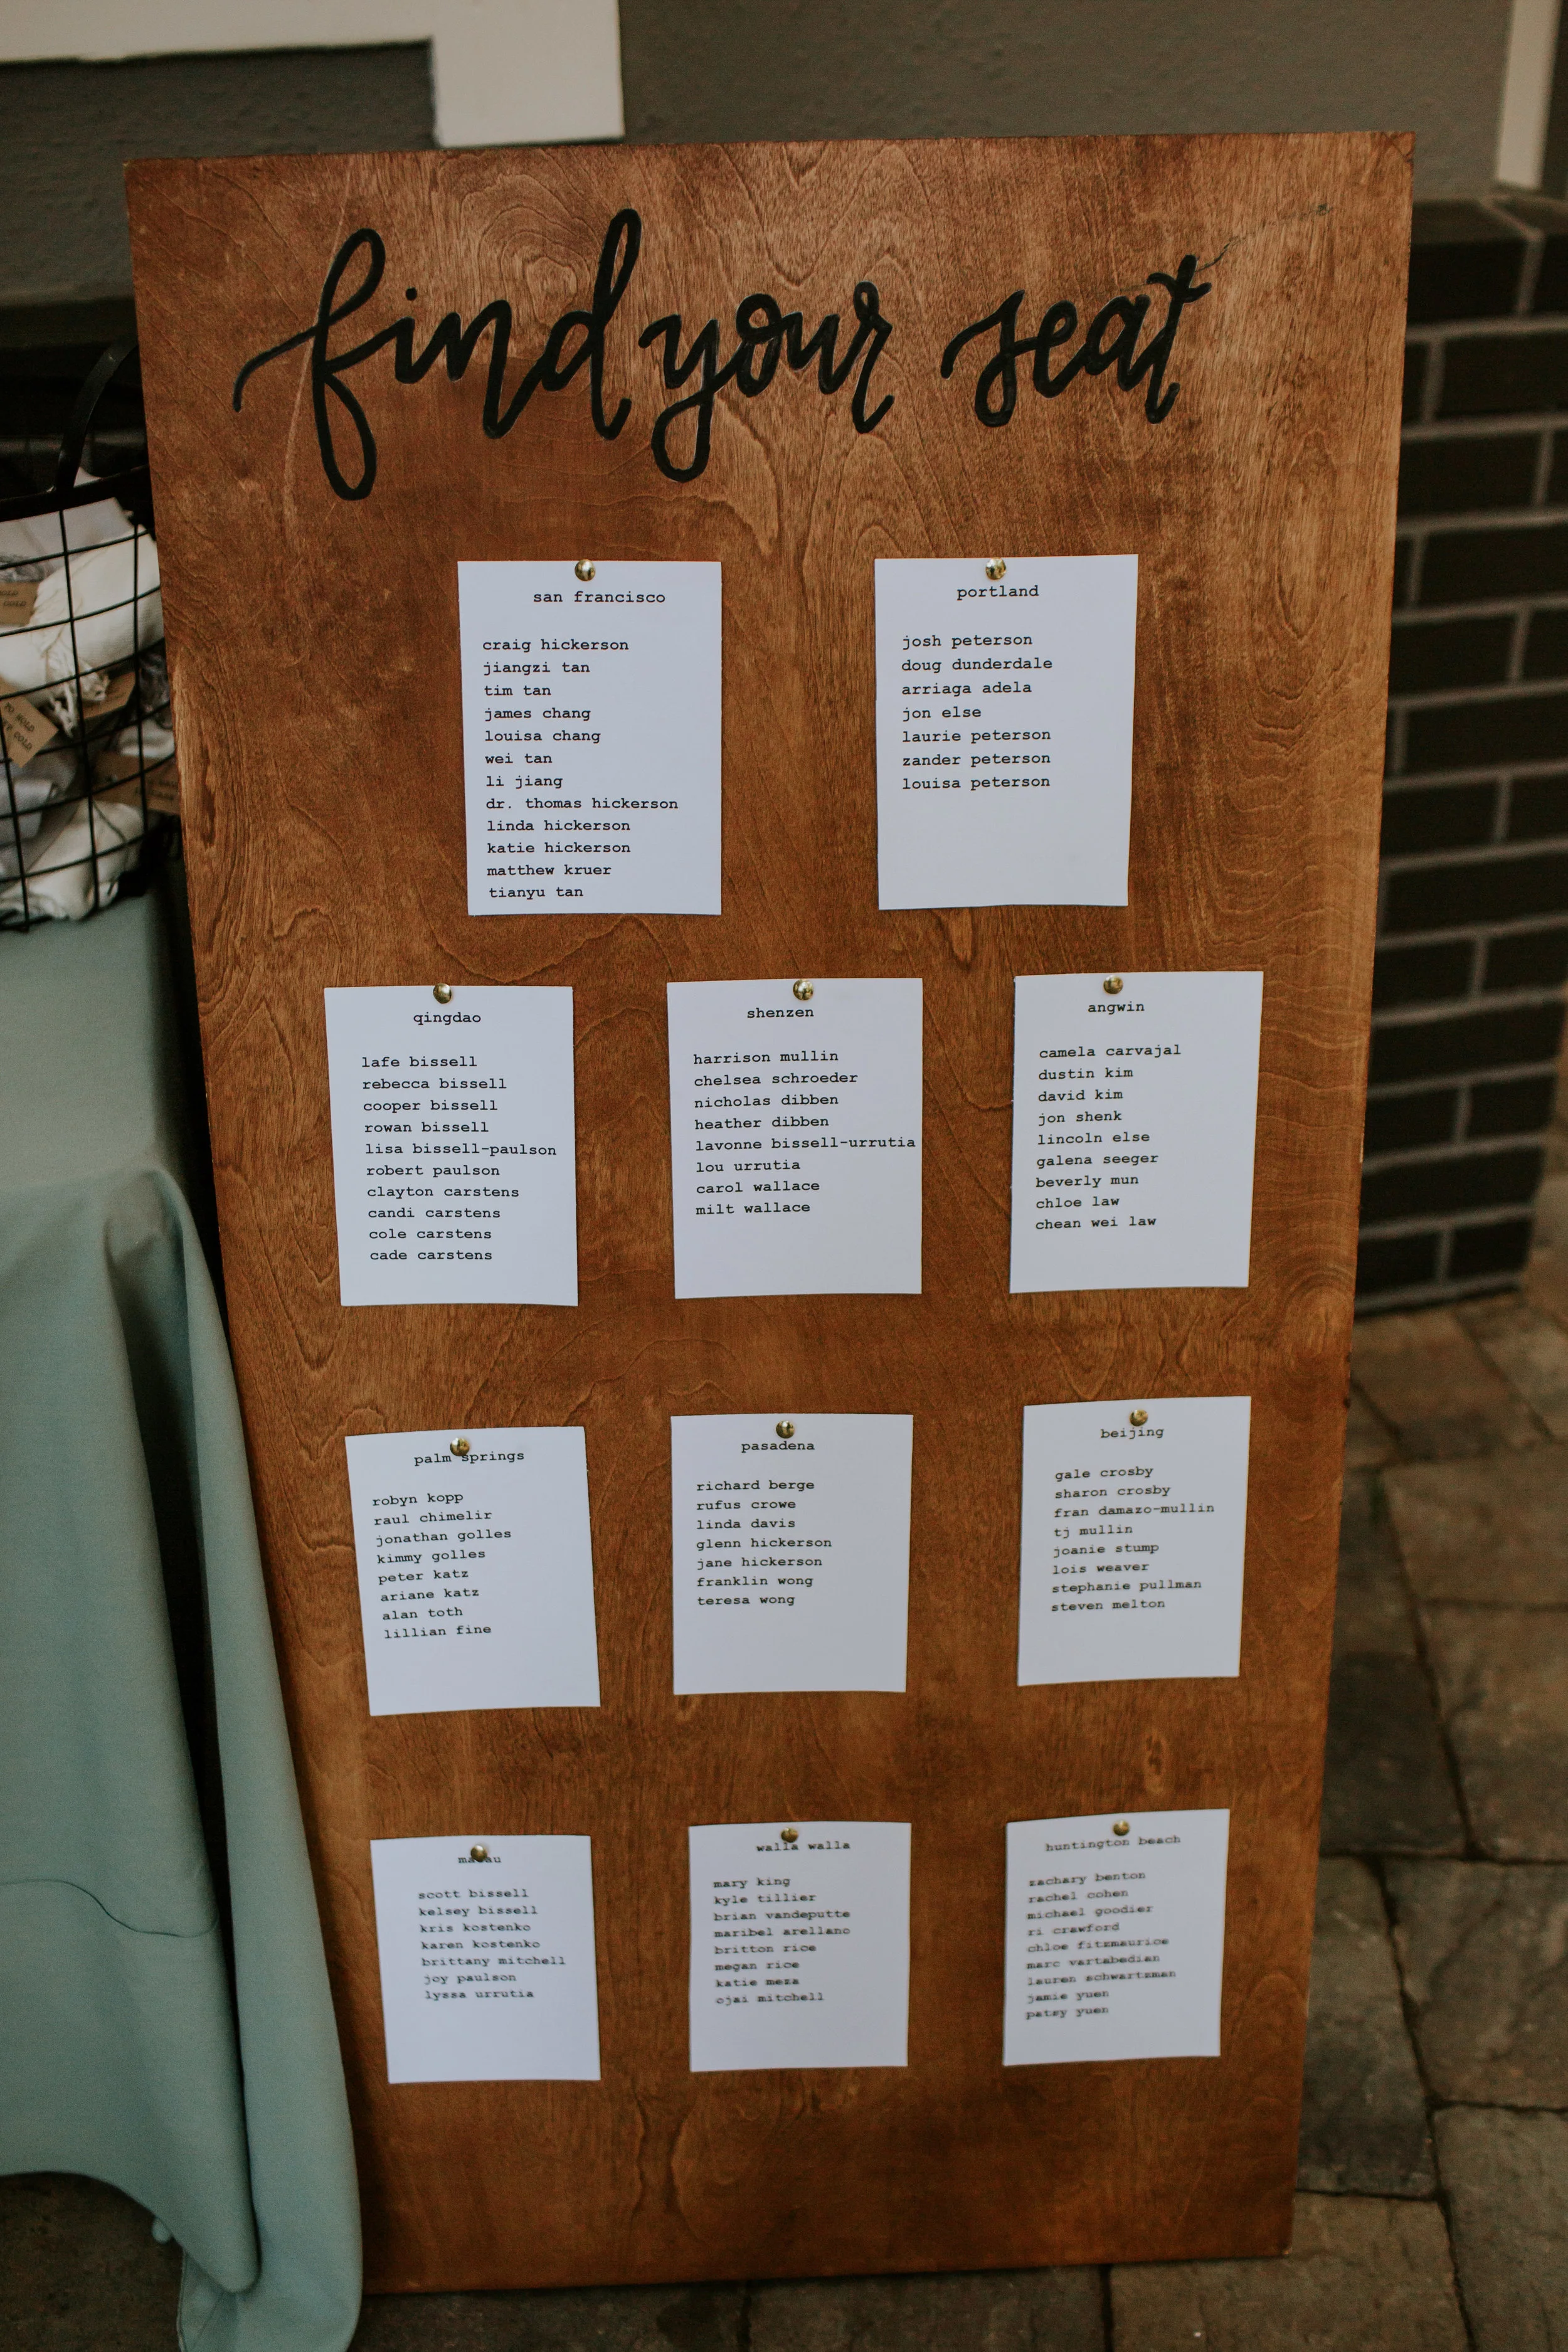 find your seat
san francisco
craig hickerson
jiangzi tan
tim tan
james chang
louisa chang
wei tan
li jiang
dr. thomas hickerson
linda hickerson
katie hickerson
matthew kruer
tianyu tan
portland
josh peterson
doug dunderdale
arriaga adela
jon else
laurie peterson
zander peterson
louisa peterson
qingdao
lafe bissell
rebecca bissell
cooper bissell
rowan bissell
lisa bissell-paulson
robert paulson
clayton carstens
candi carstens
cole carstens
cade carstens
shenzen
harrison mullin
chelsea schroeder
nicholas dibben
heather dibben
lavonne bissell-urrutia
lou urrutia
carol wallace
milt wallace
angwin
camela carvajal
dustin kim
david kim
jon shenk
lincoln else
galena seeger
beverly mun
chloe law
chean wei law
palm springs
robyn kopp
raul chimelir
jonathan golles
kimmy golles
peter katz
ariane katz
alan toth
lillian fine
pasadena
richard berge
rufus crowe
linda davis
glenn hickerson
jane hickerson
franklin wong
teresa wong
beijing
gale crosby
sharon crosby
fran damazo-mullin
tj mullin
joanie stump
lois weaver
stephanie pullman
steven melton
scott bissell
kelsey bissell
kris kostenko
karen kostenko
brittany mitchell
joy paulson
lyssa urrutia
walla walla
mary king
kyle tillier
brian vandeputte
maribel arellano
britton rice
megan rice
katie meza
ojai mitchell
huntington beach
zachary benton
rachel cohen
michael goodier
ri crawford
chloe fitzmaurice
marc vartabedian
lauren schwartzman
jamie yuen
patsy yuen